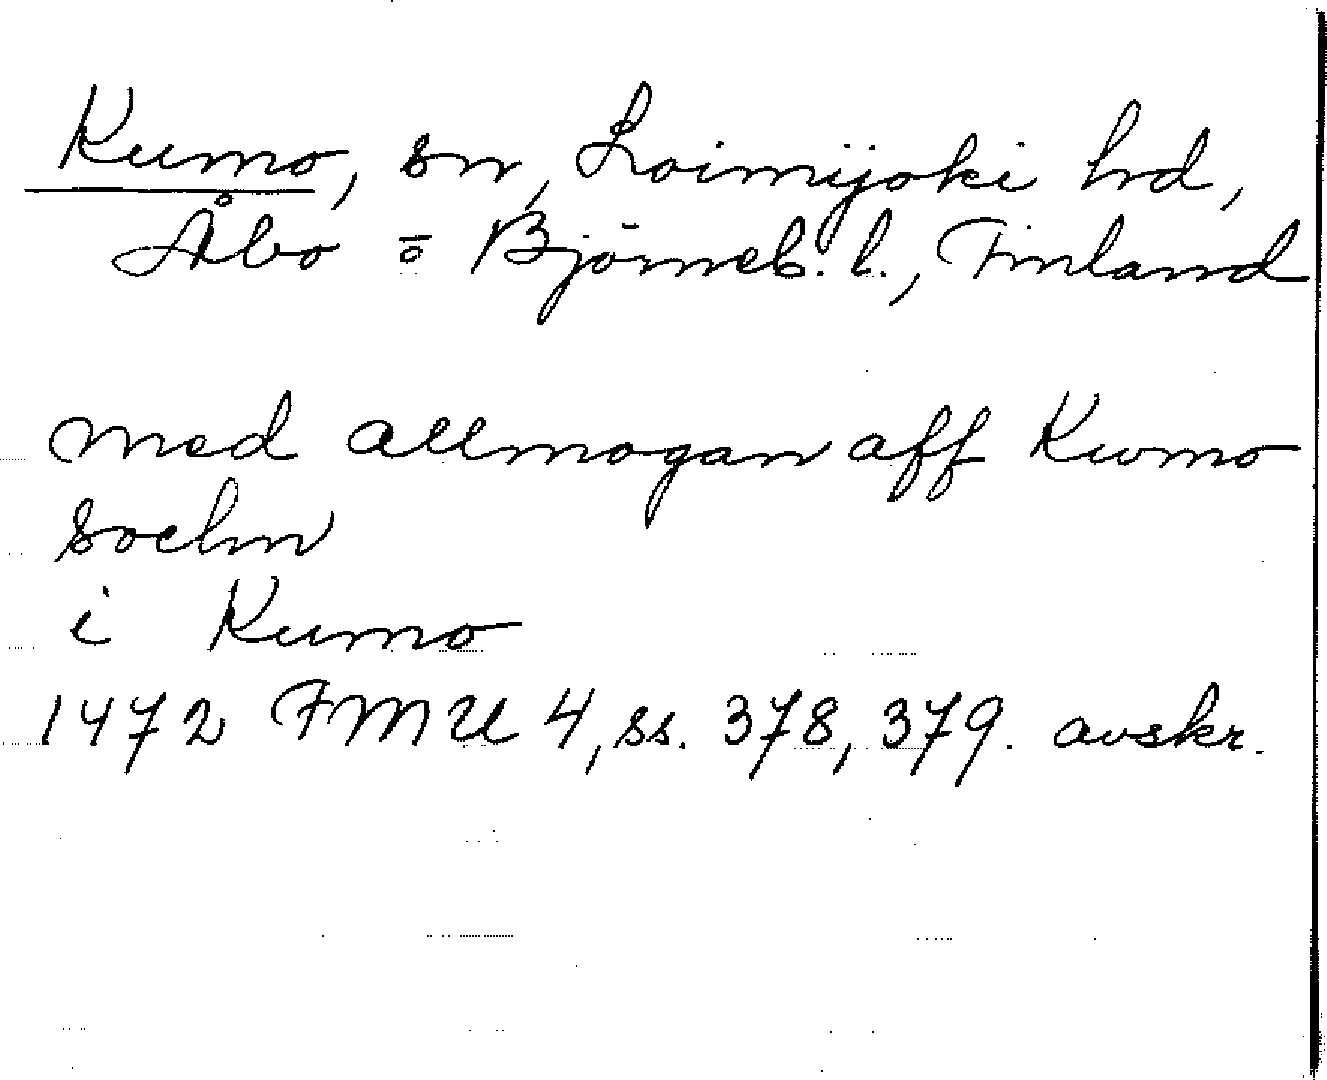 Kumo, sn, Loimijoki hd,
Åbo o Björneb. l., Finland
med allmogan aff Kumo
sochn
i Kumo
1472 FMU 4, ss. 378, 379. avskr.